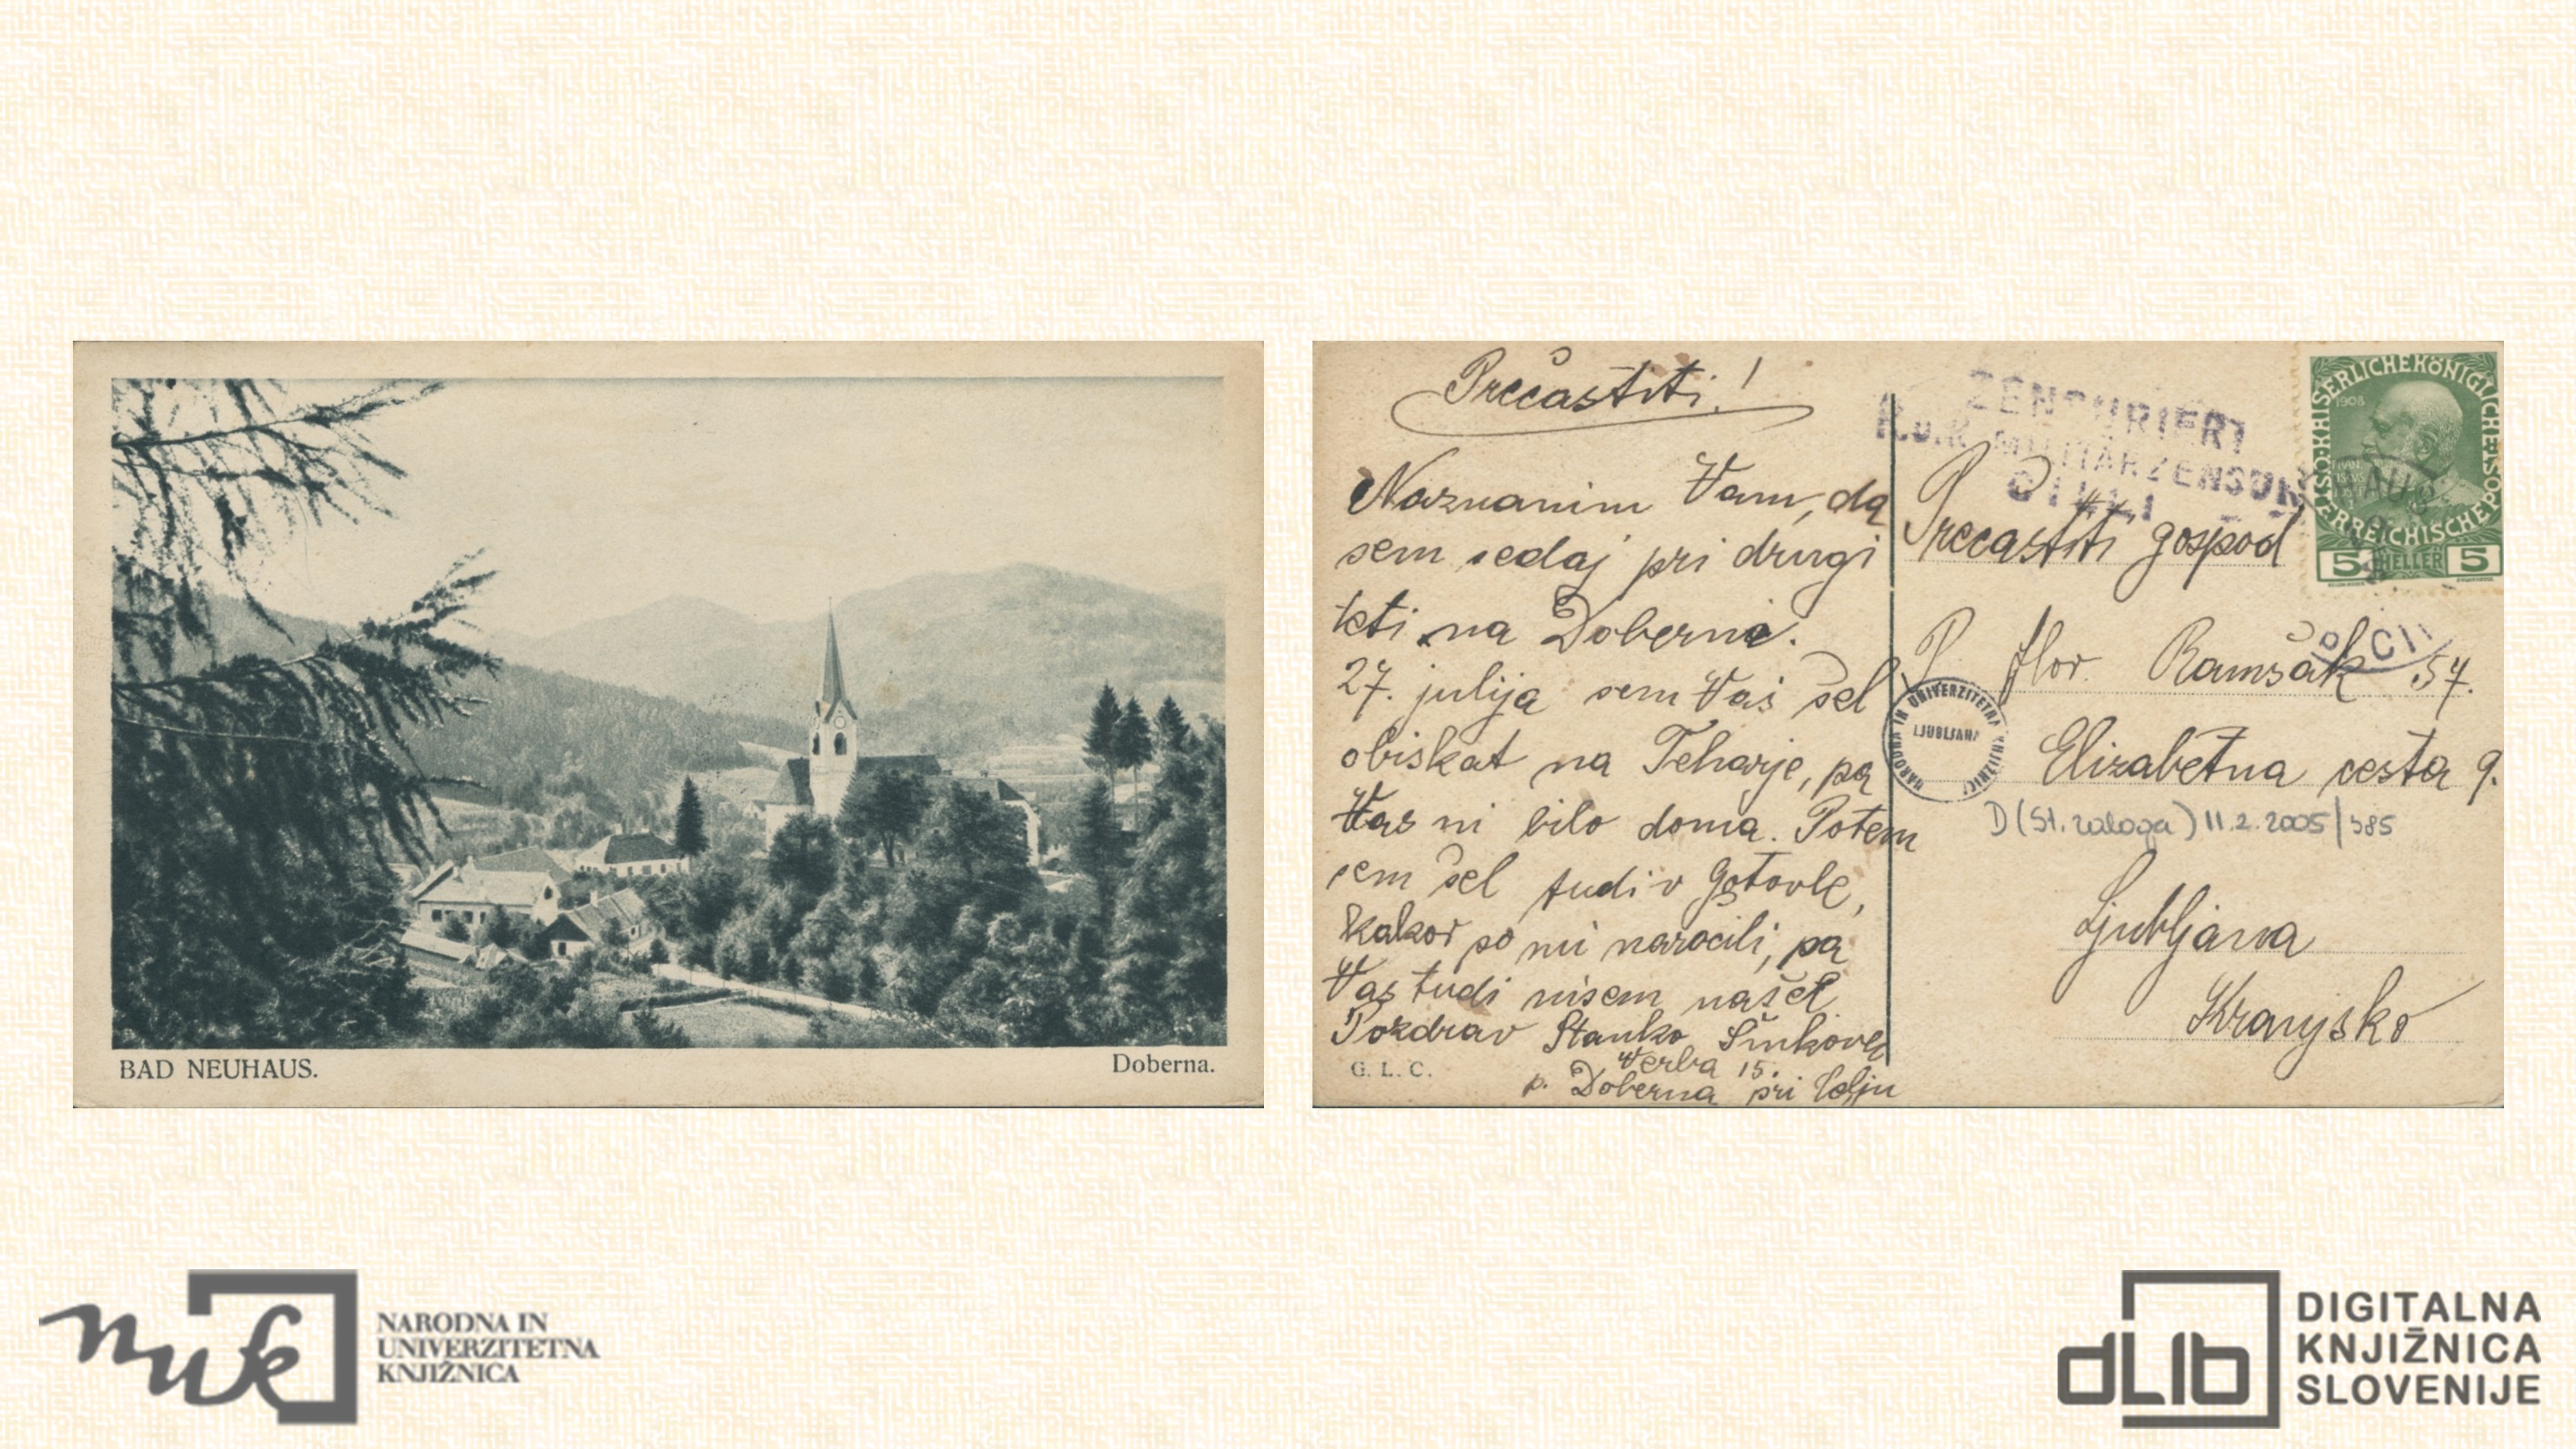 BAD NEUHAUS.
Doberna.
Prečastiti!
Naznanim Vam, da
sem sedaj pri drugi
teti na Doberni.
27. julija sem Vas šel
obiskat na Teharje, pa
Vas ni bilo doma. Potem
sem šel tudi v Gotovle,
kakor so mi naročili, pa
Vas tudi nisem našel.
Pozdrav Stanko
Verba 15.
p. Doberna pri Celju
G. L. C.
ZENSURIERT
K.u.K. MILITÄRZENSUR
CILLI
KAISERLICHE KÖNIGLICHE ÖSTERREICHISCHE POST
1908
5 HELLER 5
Prečastiti gospod
P. Flor. Ramšak
Elizabetna cesta 9.
NARODNA IN UNIVERZITETNA KNJIŽNICA
LJUBLJANA
D (St. zaloga) 11.2.2005/385
Ljubljana
Kranjsko
nuk
NARODNA IN
UNIVERZITETNA
KNJIŽNICA
dLib
DIGITALNA
KNJIŽNICA
SLOVENIJE